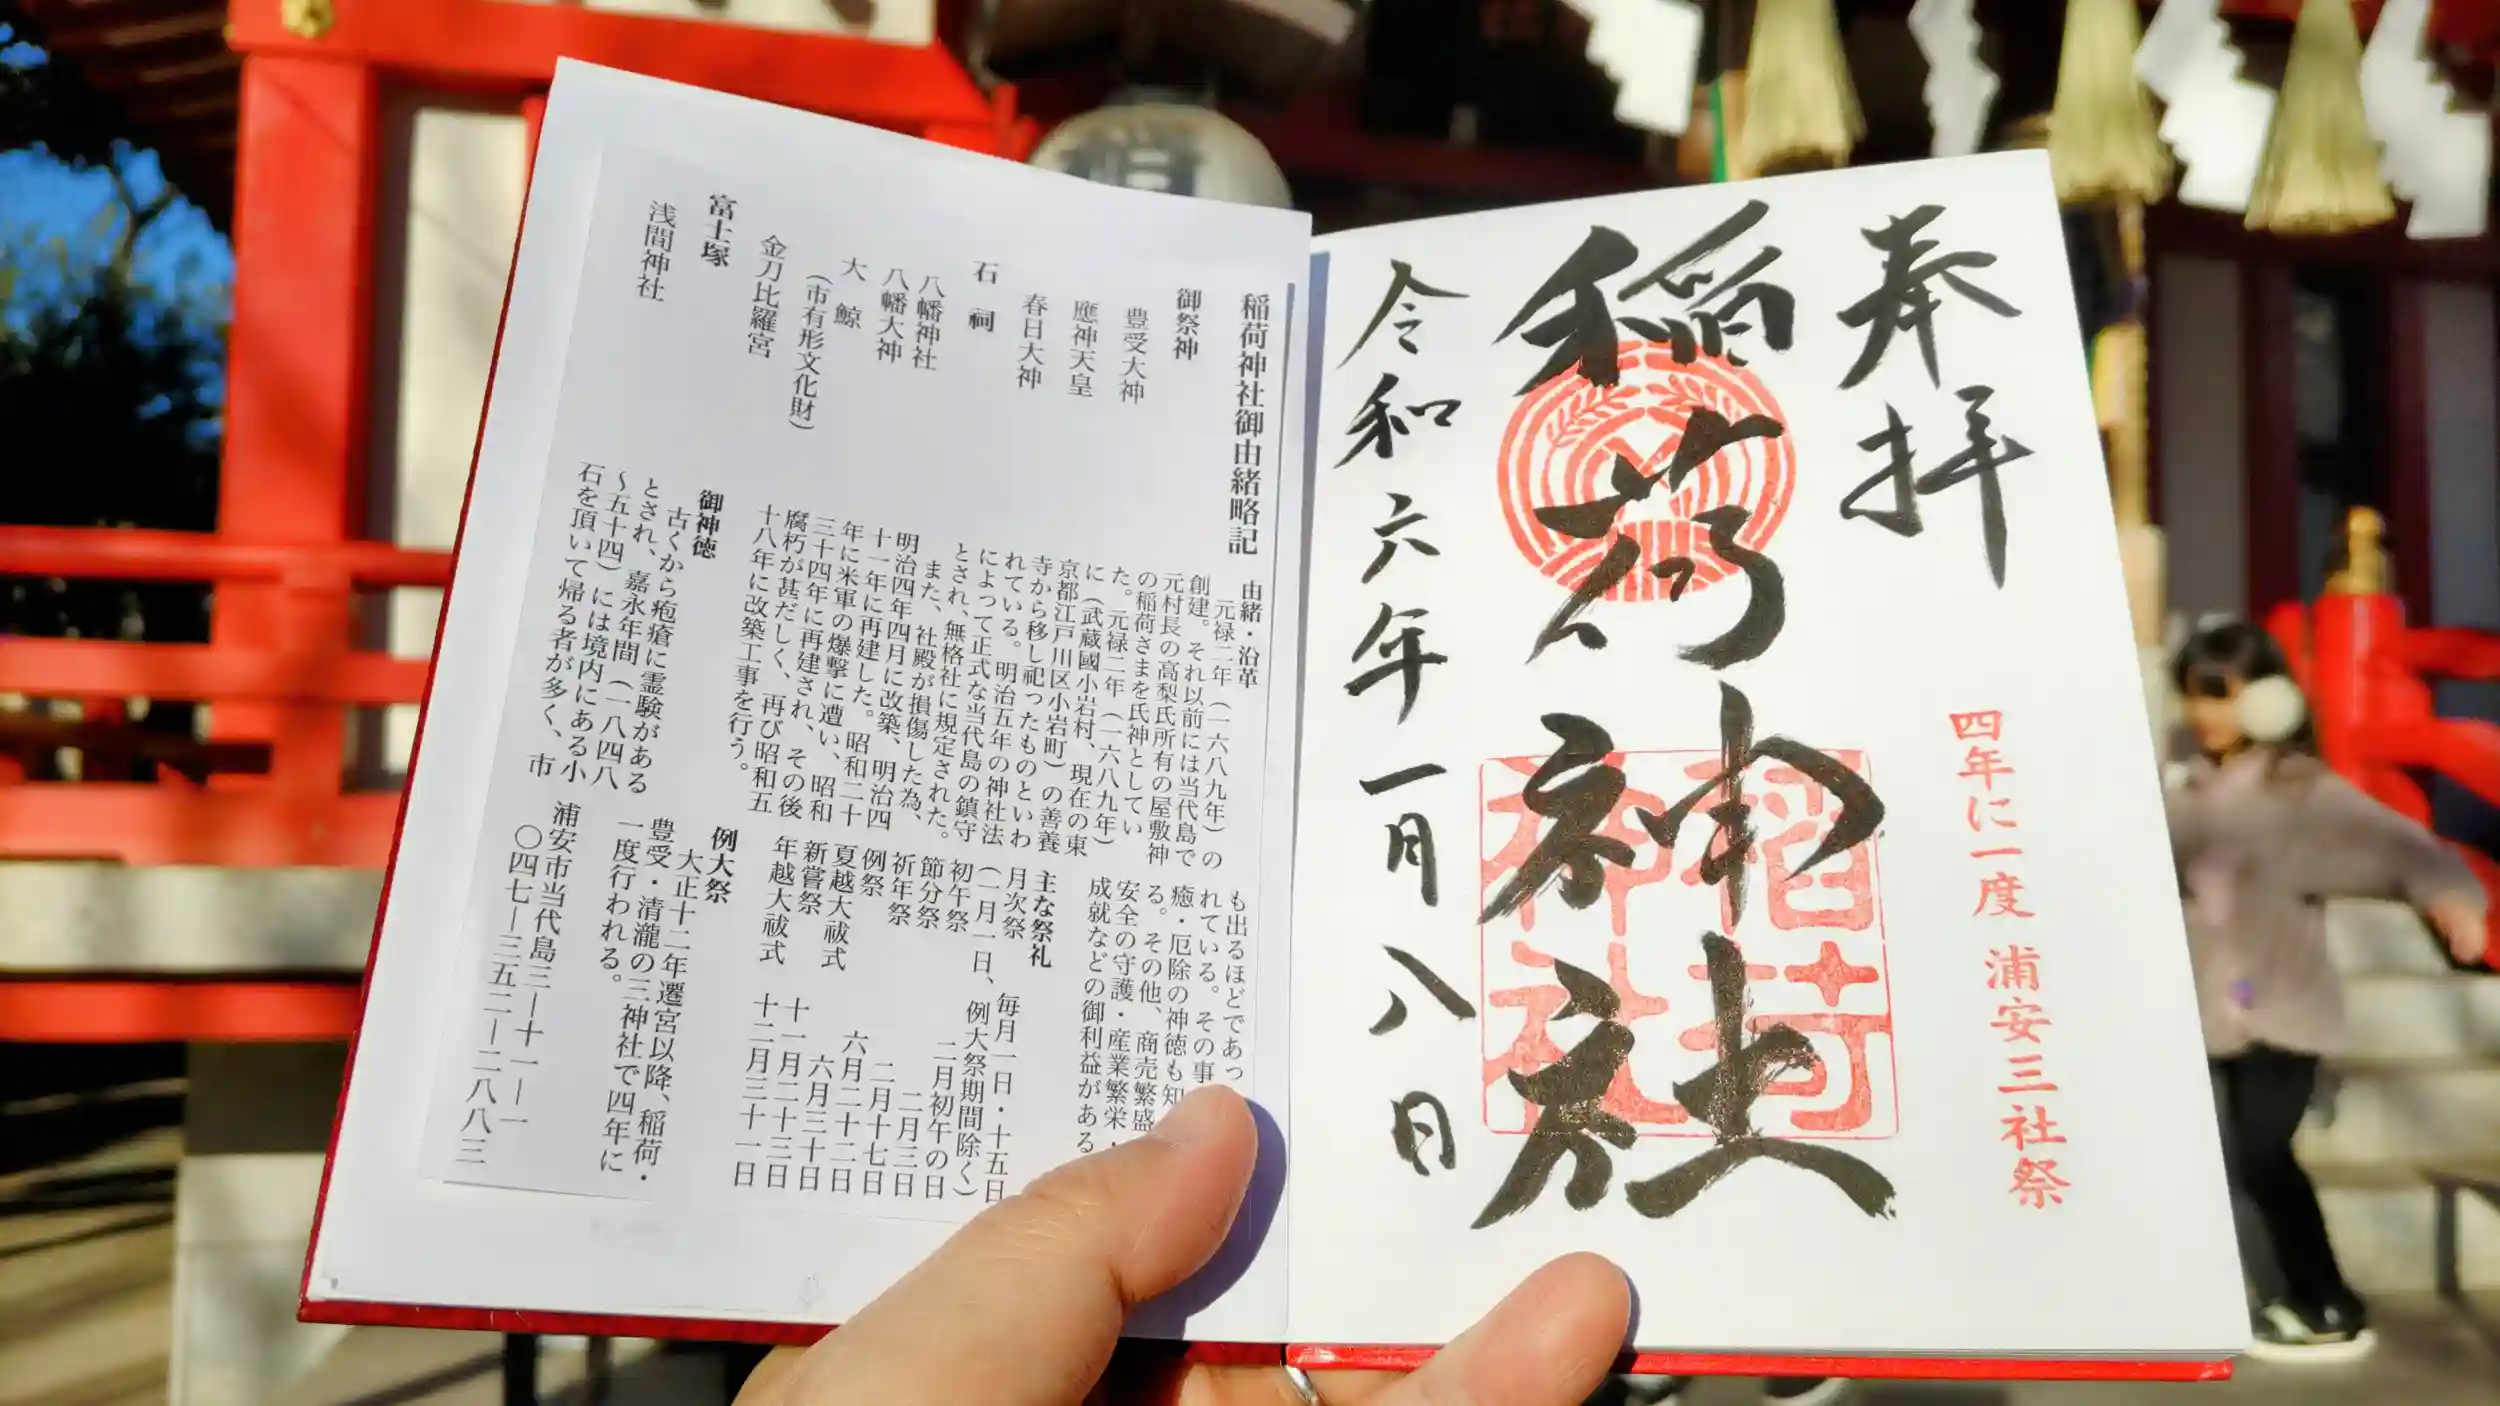 奉拝
四年に一度 浦安三社祭
稲荷神社
稲荷神社
令和六年一月八日
稲荷神社御由緒略記
御祭神
豊受大神
應神天皇
春日大神
石祠
八幡神社
八幡大神
大鯨
（市有形文化財）
金刀比羅宮
富士塚
浅間神社
由緒・沿革
元禄二年（一六八九年）の
創建。それ以前には当代島で
元村長の高梨氏所有の屋敷神
の稲荷さまを氏神としてい
た。元禄二年（一六八九年）
に（武蔵國小岩村、現在の東
京都江戸川区小岩町）の善養
寺から移し祀ったものといわ
れている。明治五年の神社法
によって正式な当代島の鎮守
とされ、無格社に規定された。
また、社殿が損傷した為、
明治四年四月に改築、明治四
十一年に再建した。昭和二十
年に米軍の爆撃に遭い、昭和
三十四年に再建され、その後
腐朽が甚だしく、再び昭和五
十八年に改築工事を行う。
御神徳
古くから疱瘡に霊験がある
とされ、嘉永年間（一八四八
～五十四）には境内にある小
石を頂いて帰る者が多く、市
も出るほどであっ
れている。その事
癒・厄除の神徳も知
る。その他、商売繁盛
安全の守護・産業繁栄・
成就などの御利益がある
主な祭礼
月次祭 毎月一日・十五日
（一月一日、例大祭期間除く）
初午祭 二月初午の日
節分祭 二月三日
祈年祭 二月十七日
例祭 六月二十二日
夏越大祓式 六月三十日
新嘗祭 十一月二十三日
年越大祓式 十二月三十一日
例大祭
大正十二年遷宮以降、稲荷・
豊受・清瀧の三神社で四年に
一度行われる。
浦安市当代島三ー十一ー一
〇四七ー三五二ー二八八三